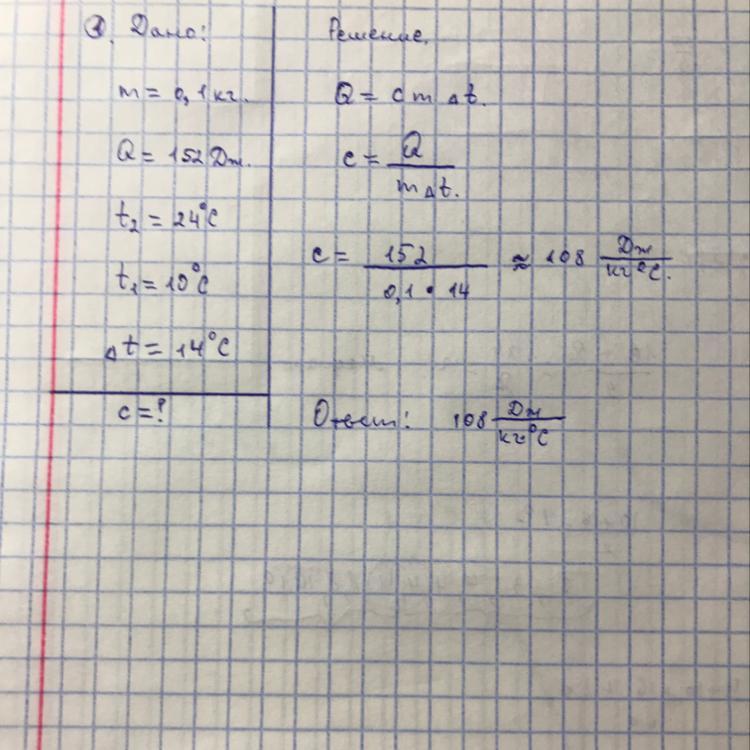 1. Дано:
m = 0,1 кг.
Q = 152 Дж.
t₂ = 24°C
t₁ = 10°C
Δt = 14°C
c = ?
Решение.
Q = c m Δt.
c = Q / mΔt.
c = 152 / 0,1 • 14 ≈ 108 Дж / кг°C.
Ответ: 108 Дж / кг°C